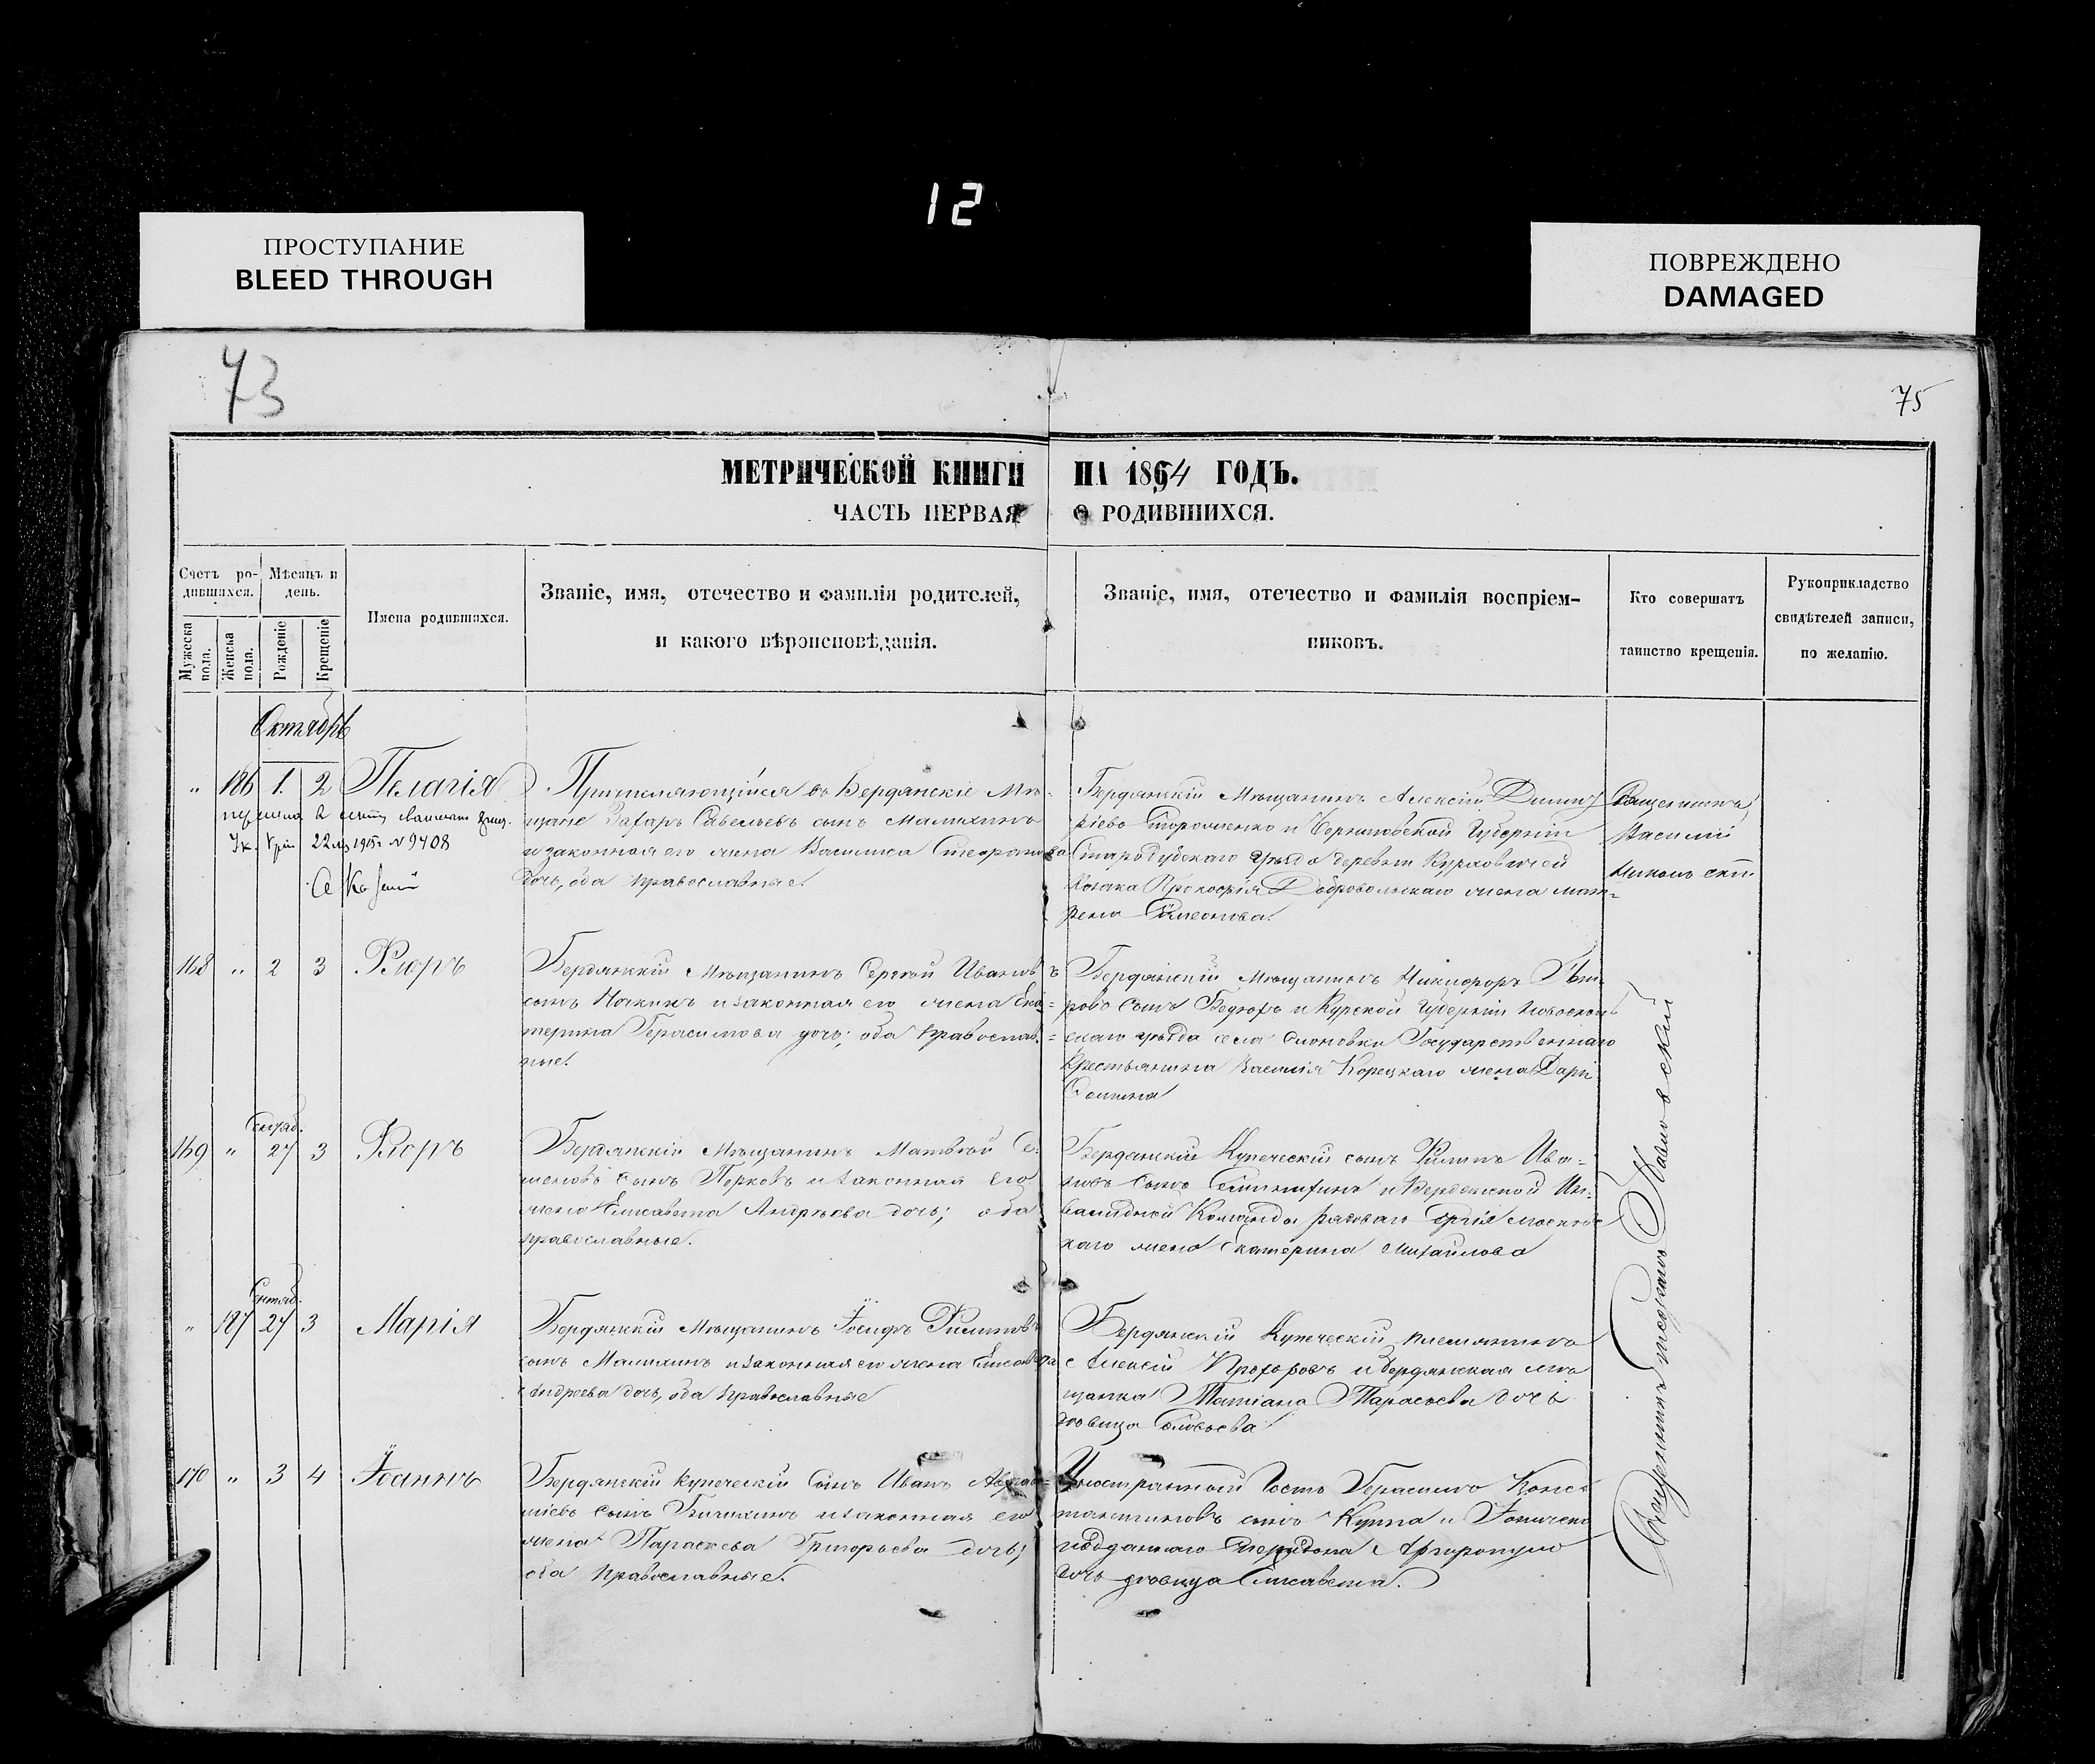 12
ПРОСТУПАНИЕ
BLEED THROUGH
ПОВРЕЖДЕНО
DAMAGED
73
75
МЕТРИЧЕСКОЙ КНИГИ НА 1864 ГОДЪ.
ЧАСТЬ ПЕРВАЯ О РОДИВШИХСЯ.
Счетъ ро-
дившихся.
Мѣсяцъ и
день.
Мужеска
пола.
Женска
пола.
Рожденіе
Крещеніе
Имена родившихся.
Званіе, имя, отечество и фамилія родителей,
и какого вѣроисповѣданія.
Званіе, имя, отечество и фамилія воспріем-
никовъ.
Кто совершатъ
таинство крещенія.
Рукоприкладство
свидѣтелей записи,
по желанію.
Октябрь
" 186 1. 2 Пелагія
22 1915 N 9408
въ Бердянскіе Мѣ-
щане Захаръ Савельевъ сынъ Малихинъ
и законная его жена Василиса
дочь, оба православные.
Бердянскій Мѣщанинъ Алексій Дими-
ріевъ Стороженко и Черниговской Губерніи
Стародубскаго уѣзда деревни Курковичей
Козака Прокофія Добровольскаго жена Мат-
рена Симеонова.
Священникъ
Василій
168 " 2 3 Флоръ
Бердянскій Мѣщанинъ Сергѣй Ивановъ
сынъ и законная его жена Ека-
терина Герасимова дочь; оба православ-
ные.
Бердянскій Мѣщанинъ Никифоръ
ровъ сынъ и Курской Губерніи
скаго уѣзда села Слоновки Государственнаго
Крестьянина Василія Корецкаго жена Дарія
169 " 27 3 Флоръ
Бердянскій Мѣщанинъ Матвѣй Се-
меновъ сынъ Перковъ и законная его
жена Елисавета Андреева дочь; оба
православные.
Бердянскій Купеческій сынъ Филипъ Ива-
новъ сынъ и Бердянской Ин-
валидной Команды рядоваго
каго жена Екатерина Михайлова
Сентяб.
" 187 27 3 Марія
Бердянскій Мѣщанинъ Іосифъ Филиповъ
сынъ Малихинъ и законная его жена Елисавета
Андреева дочь, оба православные
Бердянскій Купеческій племянникъ
Алексій Прохоровъ и Бердянская мѣ-
щанка Татіана Тарасьева дочь
170 " 3 4 Іоаннъ
Бердянскій купеческій сынъ Иванъ
сынъ и законная его
жена Параскева Григорьева дочь;
оба православные.
Иностранный Гость Герасимъ Конс-
тантиновъ сынъ Куппа и
подданнаго Спиридона Аргиропуло
дочь дѣвица Елисавета.
Священникъ Теодоръ Павловскій